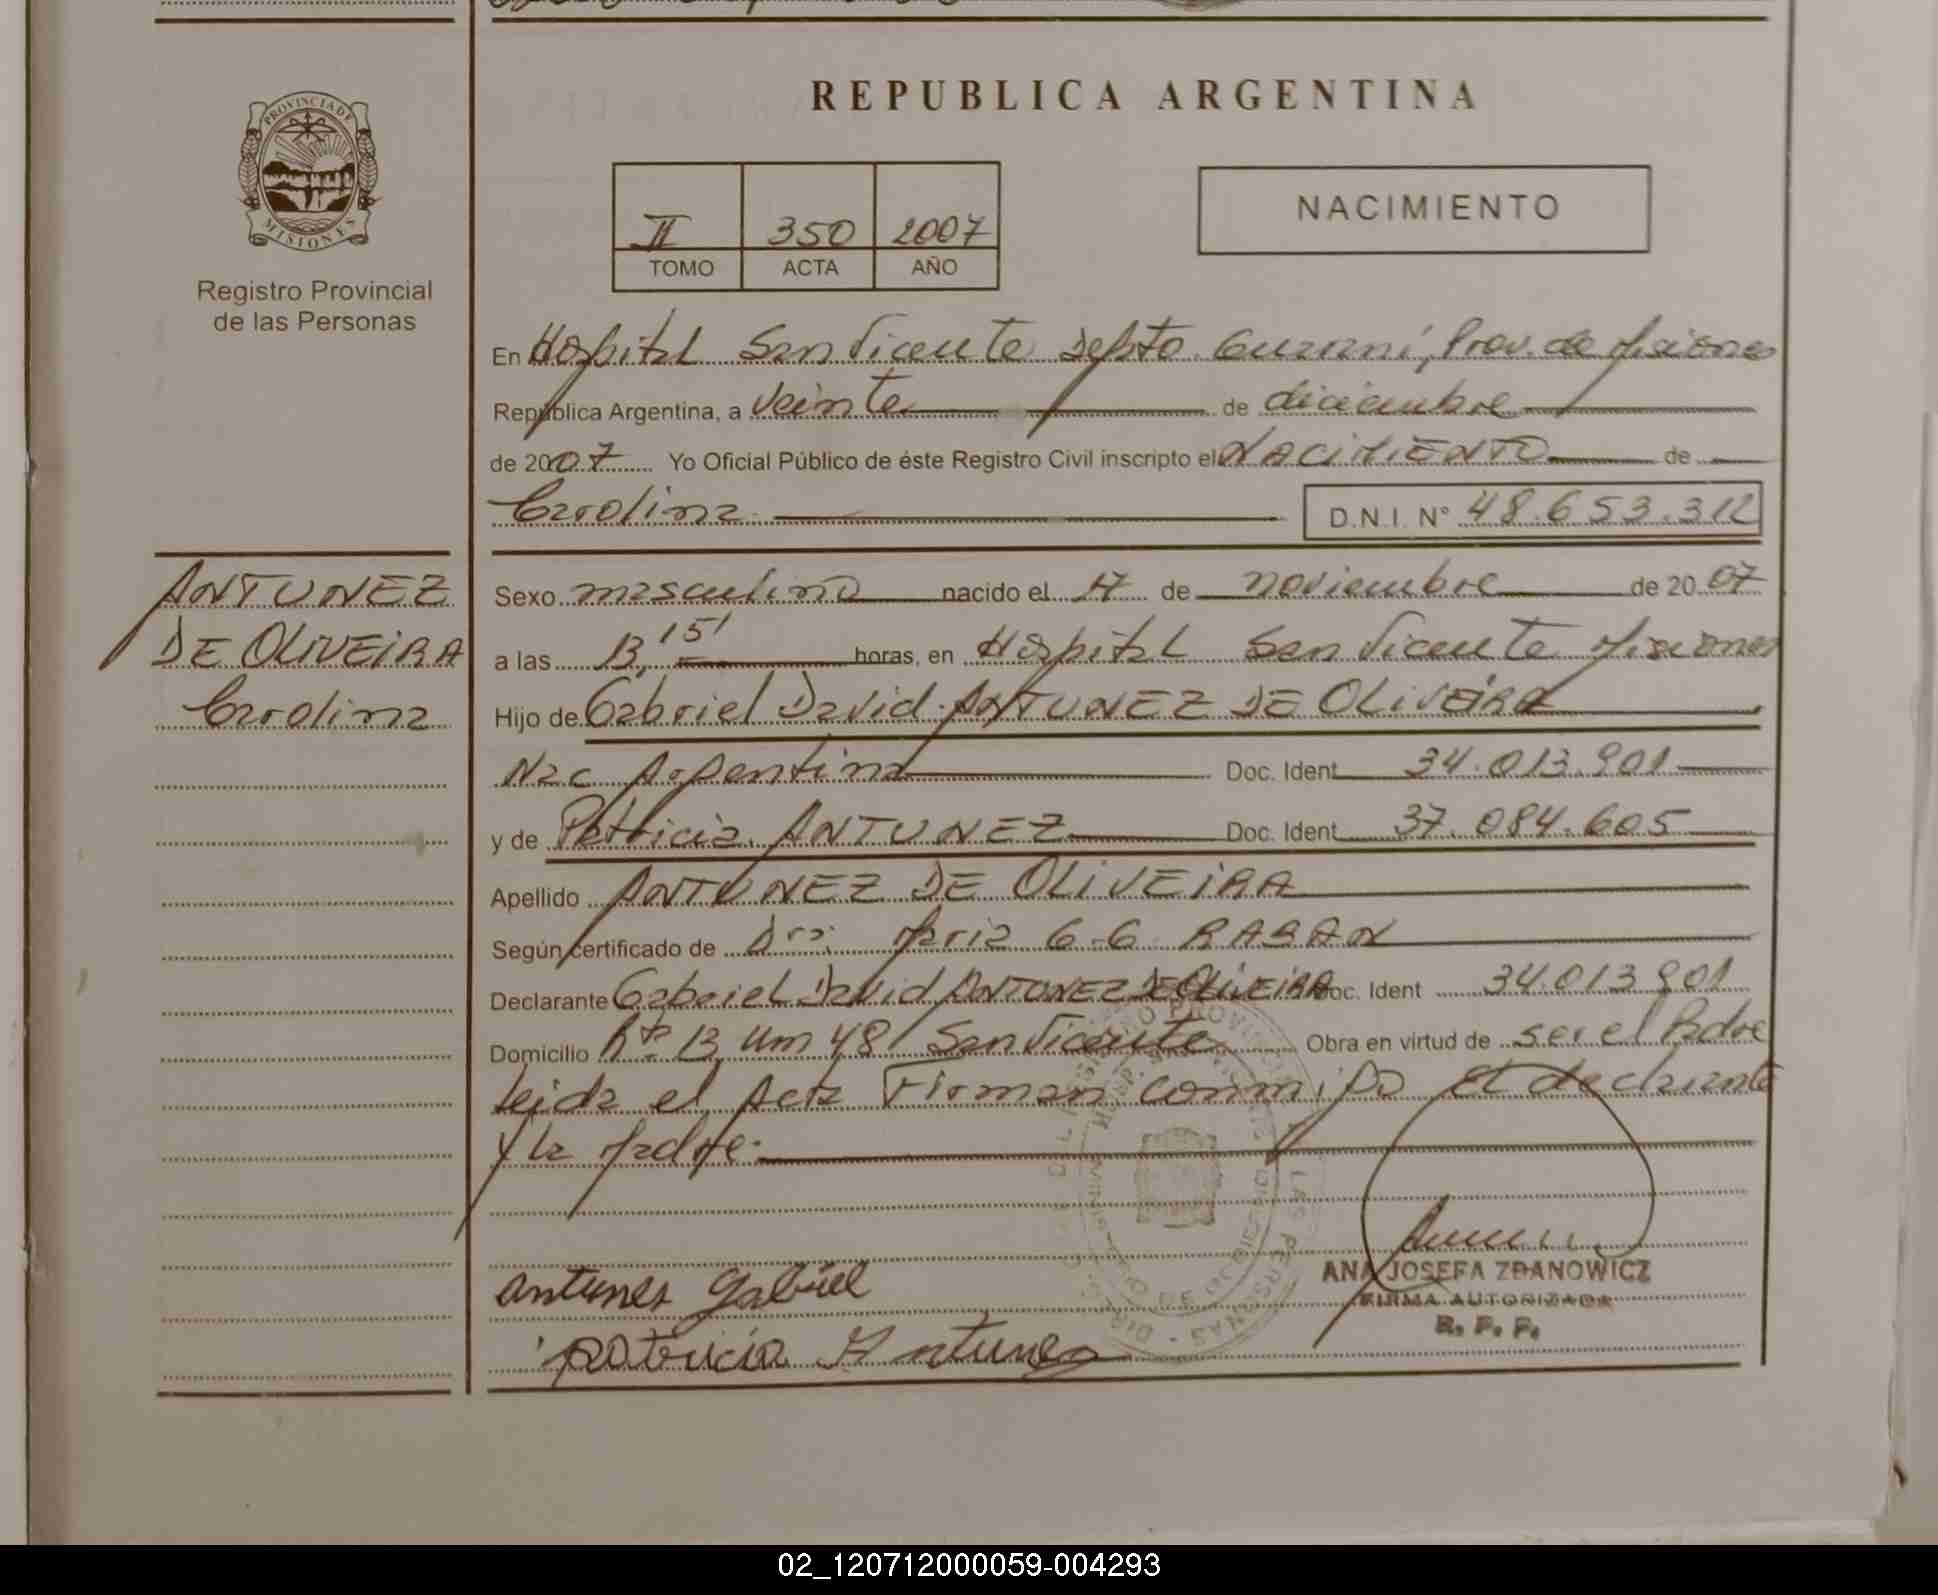 REPUBLICA ARGENTINA
PROVINCIA DE
MISIONES
Registro Provincial
de las Personas
II 350 2007
TOMO ACTA AÑO
NACIMIENTO
En Hospital San Vicente Depto Guarani, Prov. de Misiones
República Argentina, a Veinte de diciembre
de 2007 Yo Oficial Público de éste Registro Civil inscripto el NACIMIENTO de
Carolina D.N.I. N° 48.653.312
ANTUNEZ
DE OLIVEIRA
Carolina
Sexo masculino nacido el 17 de noviembre de 2007
a las 13,15' horas, en Hospital San Vicente Misiones
Hijo de Gabriel David ANTUNEZ DE OLIVEIRA
Nac Argentina Doc. Ident 34.013.901
y de Patricia ANTUNEZ Doc. Ident 37.084.605
Apellido ANTUNEZ DE OLIVEIRA
Según certificado de Dra. Maria G.G.
Declarante Gabriel David ANTUNEZ DE OLIVEIRA Doc. Ident 34.013.901
Domicilio Rta 13 Km 48 San Vicente Obra en virtud de ser el Padre
leida el Acta Firman conmigo el declarante
y la Madre.
antunes gabriel
patricia Antunes
ANA JOSEFA ZDANOWICZ
FIRMA AUTORIZADA
R. P. P.
02_120712000059-004293